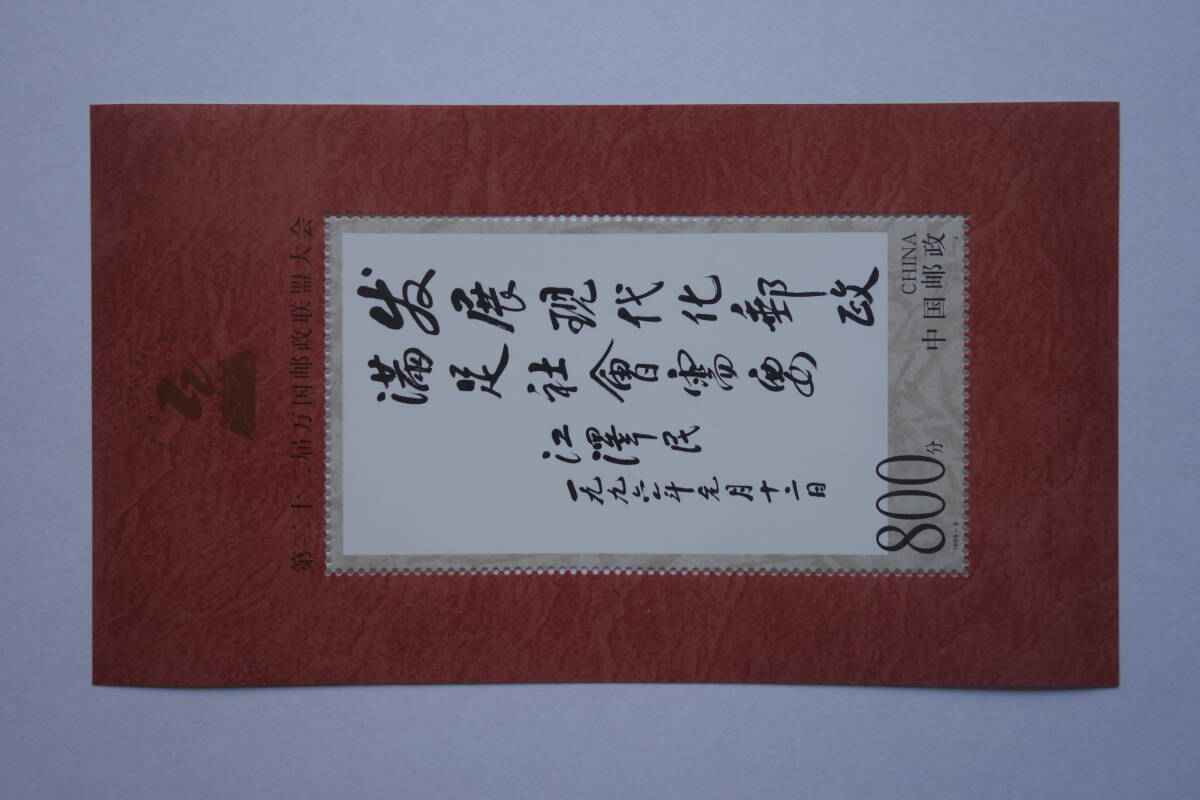 第二十二届万国邮政联盟大会
发展现代化郵政
满足社會需要
江澤民
一九九六年元月十二日
中国邮政
CHINA
800分
1999-9
J